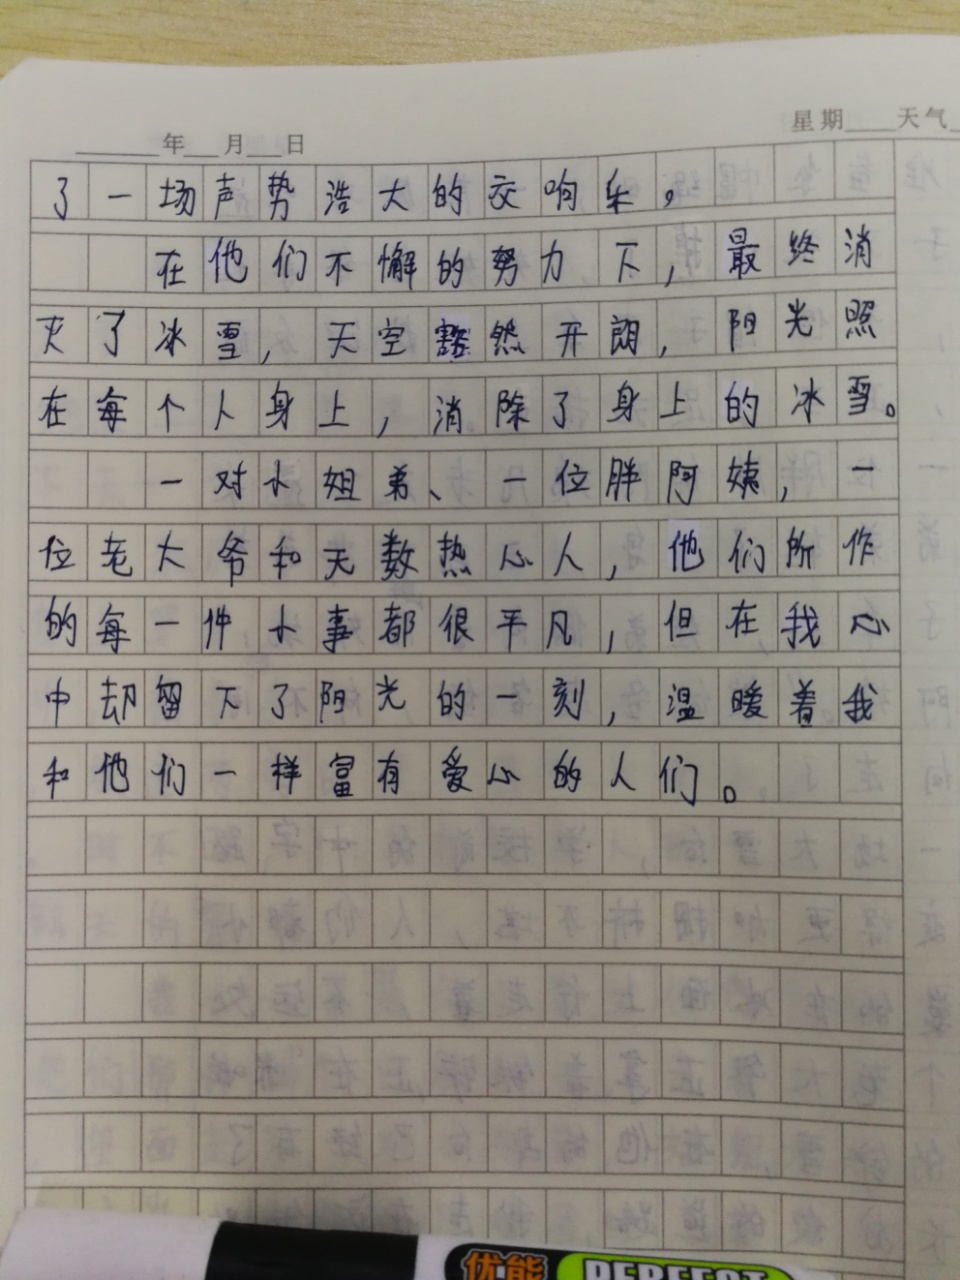 年 月 日
星期 天气
了一场声势浩大的交响乐。
在他们不懈的努力下，最终消
灭了冰雪，天空豁然开朗，阳光照
在每个人身上，消除了身上的冰雪。
一对小姐弟、一位胖阿姨，一
位老大爷和无数热心人，他们所作
的每一件小事都很平凡，但在我心
中却留下了阳光的一刻，温暖着我
和他们一样富有爱心的人们。
优能 PERFECT